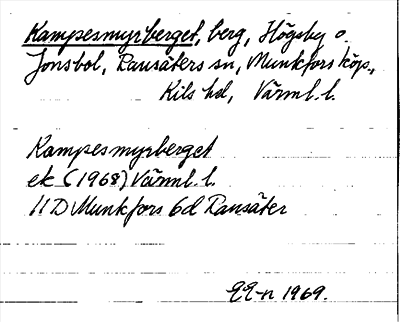 Kampesmyrberget, berg, Högsby o.
Jonsbol, Ransäters sn, Munkfors köp.,
Kils hd, Värml. l.
Kampesmyrberget
ek (1968) Värml. l.
11 D Munkfors 6d Ransäter
1969.